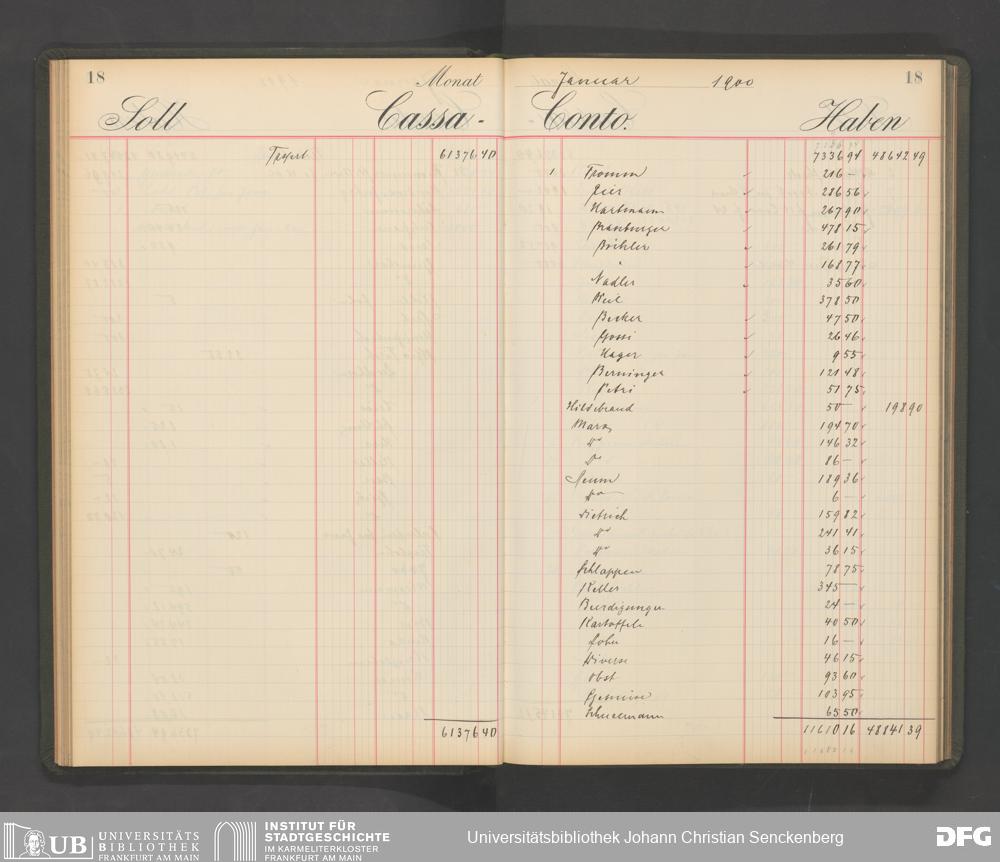 18 Monat
Soll Cassa-
Trsprt. 61376 40
61376 40
Januar 1900 18
Conto. Haben
7336 94 48642 49
1 Fromm 216 —
286 56
Hartmann 267 90
478 15
261 79
" 168 77
Nadler 35 60
Keil 378 50
Becker 47 50
26 46
Hager 9 55
Berninger 121 48
Petri 51 75
Hildebrand 50 — 198 90
Marx 194 70
do 146 32
do 86 —
189 36
do 6 —
Dietrich 159 82
do 241 41
do 36 15
Schlappen 78 75
Keller 345 —
Beerdigungen 24 —
Kartoffeln 40 50
16 —
Diverse 46 15
Obst 93 60
Gemüse 103 95
65 50
11610 16 48841 39
UB UNIVERSITÄTS
BIBLIOTHEK
FRANKFURT AM MAIN
INSTITUT FÜR
STADTGESCHICHTE
IM KARMELITERKLOSTER
FRANKFURT AM MAIN
Universitätsbibliothek Johann Christian Senckenberg
DFG